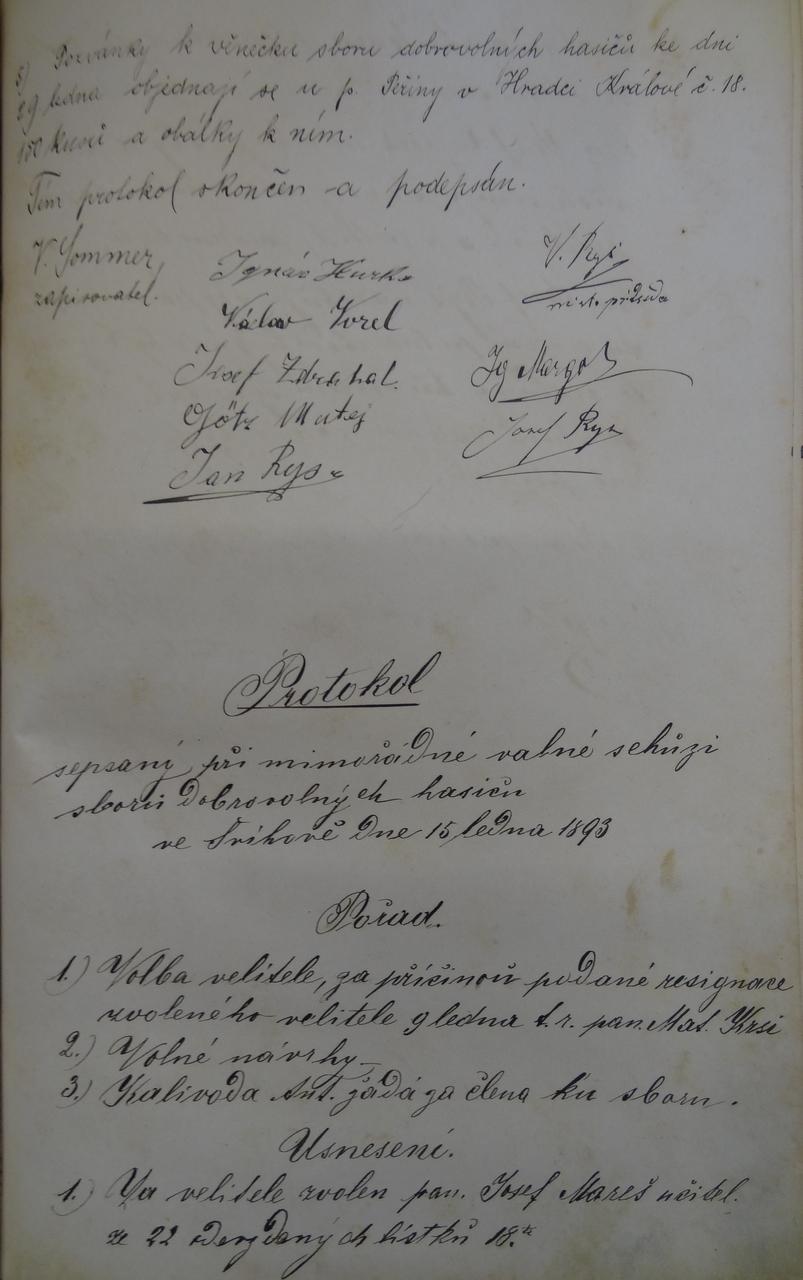 5) Pozvánky k věnečku sboru dobrovolných hasičů ke dni
29 ledna objednají se u p. Peřiny v Hradci Králové č. 18.
150 kusů a obálky k ním.
Tím protokol skončen a podepsán.
V. Sommer
zapisovatel.
Ignác Hurka
Václav Vorel
Josef Zdrahal.
Götz Matej
Jan Rys
V. Rys
Ig Margol
Josef Rys
Protokol
sepsaný při mimořádné valné schůzi
sboru dobrovolných hasičů
ve Dne 15 ledna 1893
Pořad.
1.) Volba velitele, za příčinou podané resignace
zvoleného velitele 9 ledna t. r. pan. Mat. Krsi
2.) Volné návrhy
3.) Kalivoda Ant. žádá za člena ku sboru.
Usnesení.
1.) Za velitele zvolen pan. Josef Mareš učitel.
ze 22 odevzdaných lístků 18.